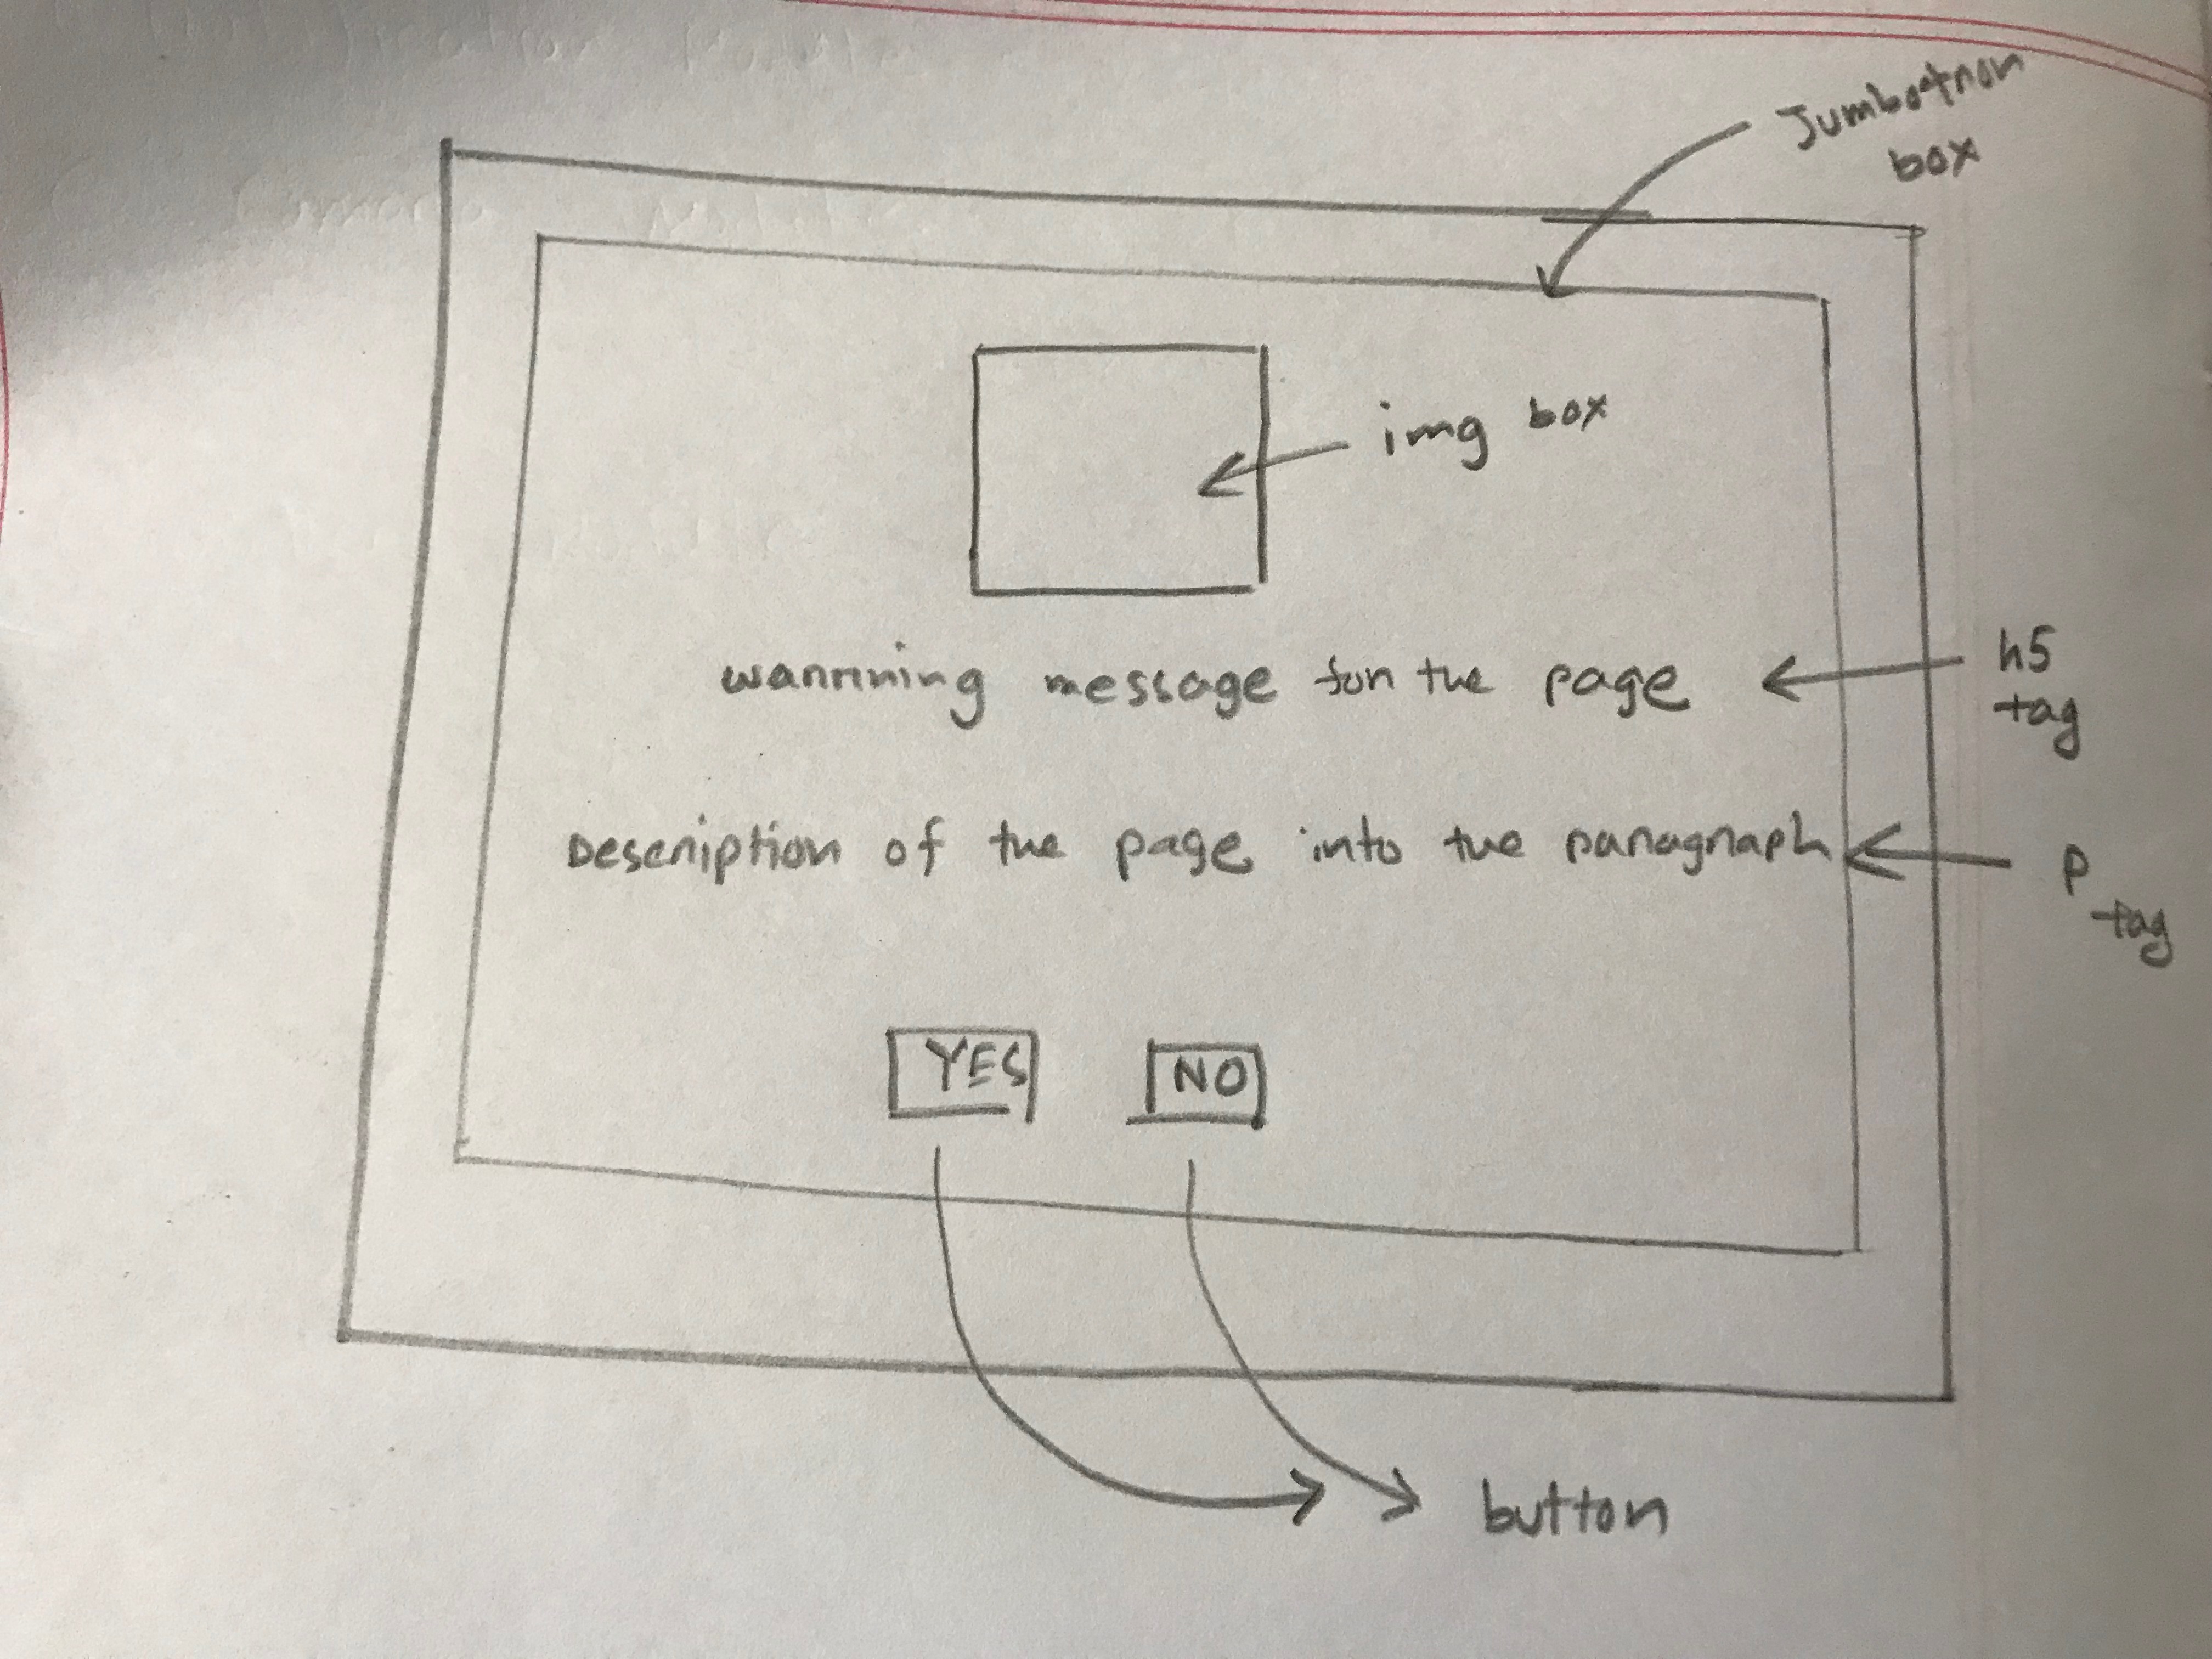 Jumbotron
box
img box
warnning message for the page
h5
tag
Description of the page into the paragraph
P
tag
YES
NO
button